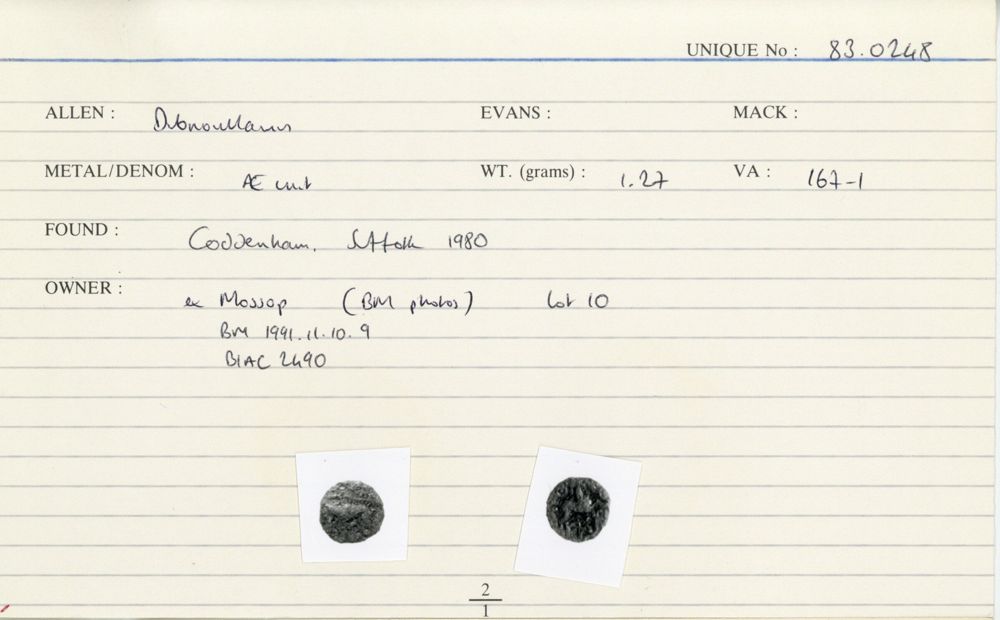 UNIQUE No : 83.0248
ALLEN : Dubnovellaunus EVANS : MACK :
METAL/DENOM : Æ unit WT. (grams) : 1.27 VA : 167-1
FOUND : Coddenham, Suffolk 1980
OWNER : ex Mossop (BM photos) Lot 10
BM 1991.11.10.9
BIAC 2490
2
1